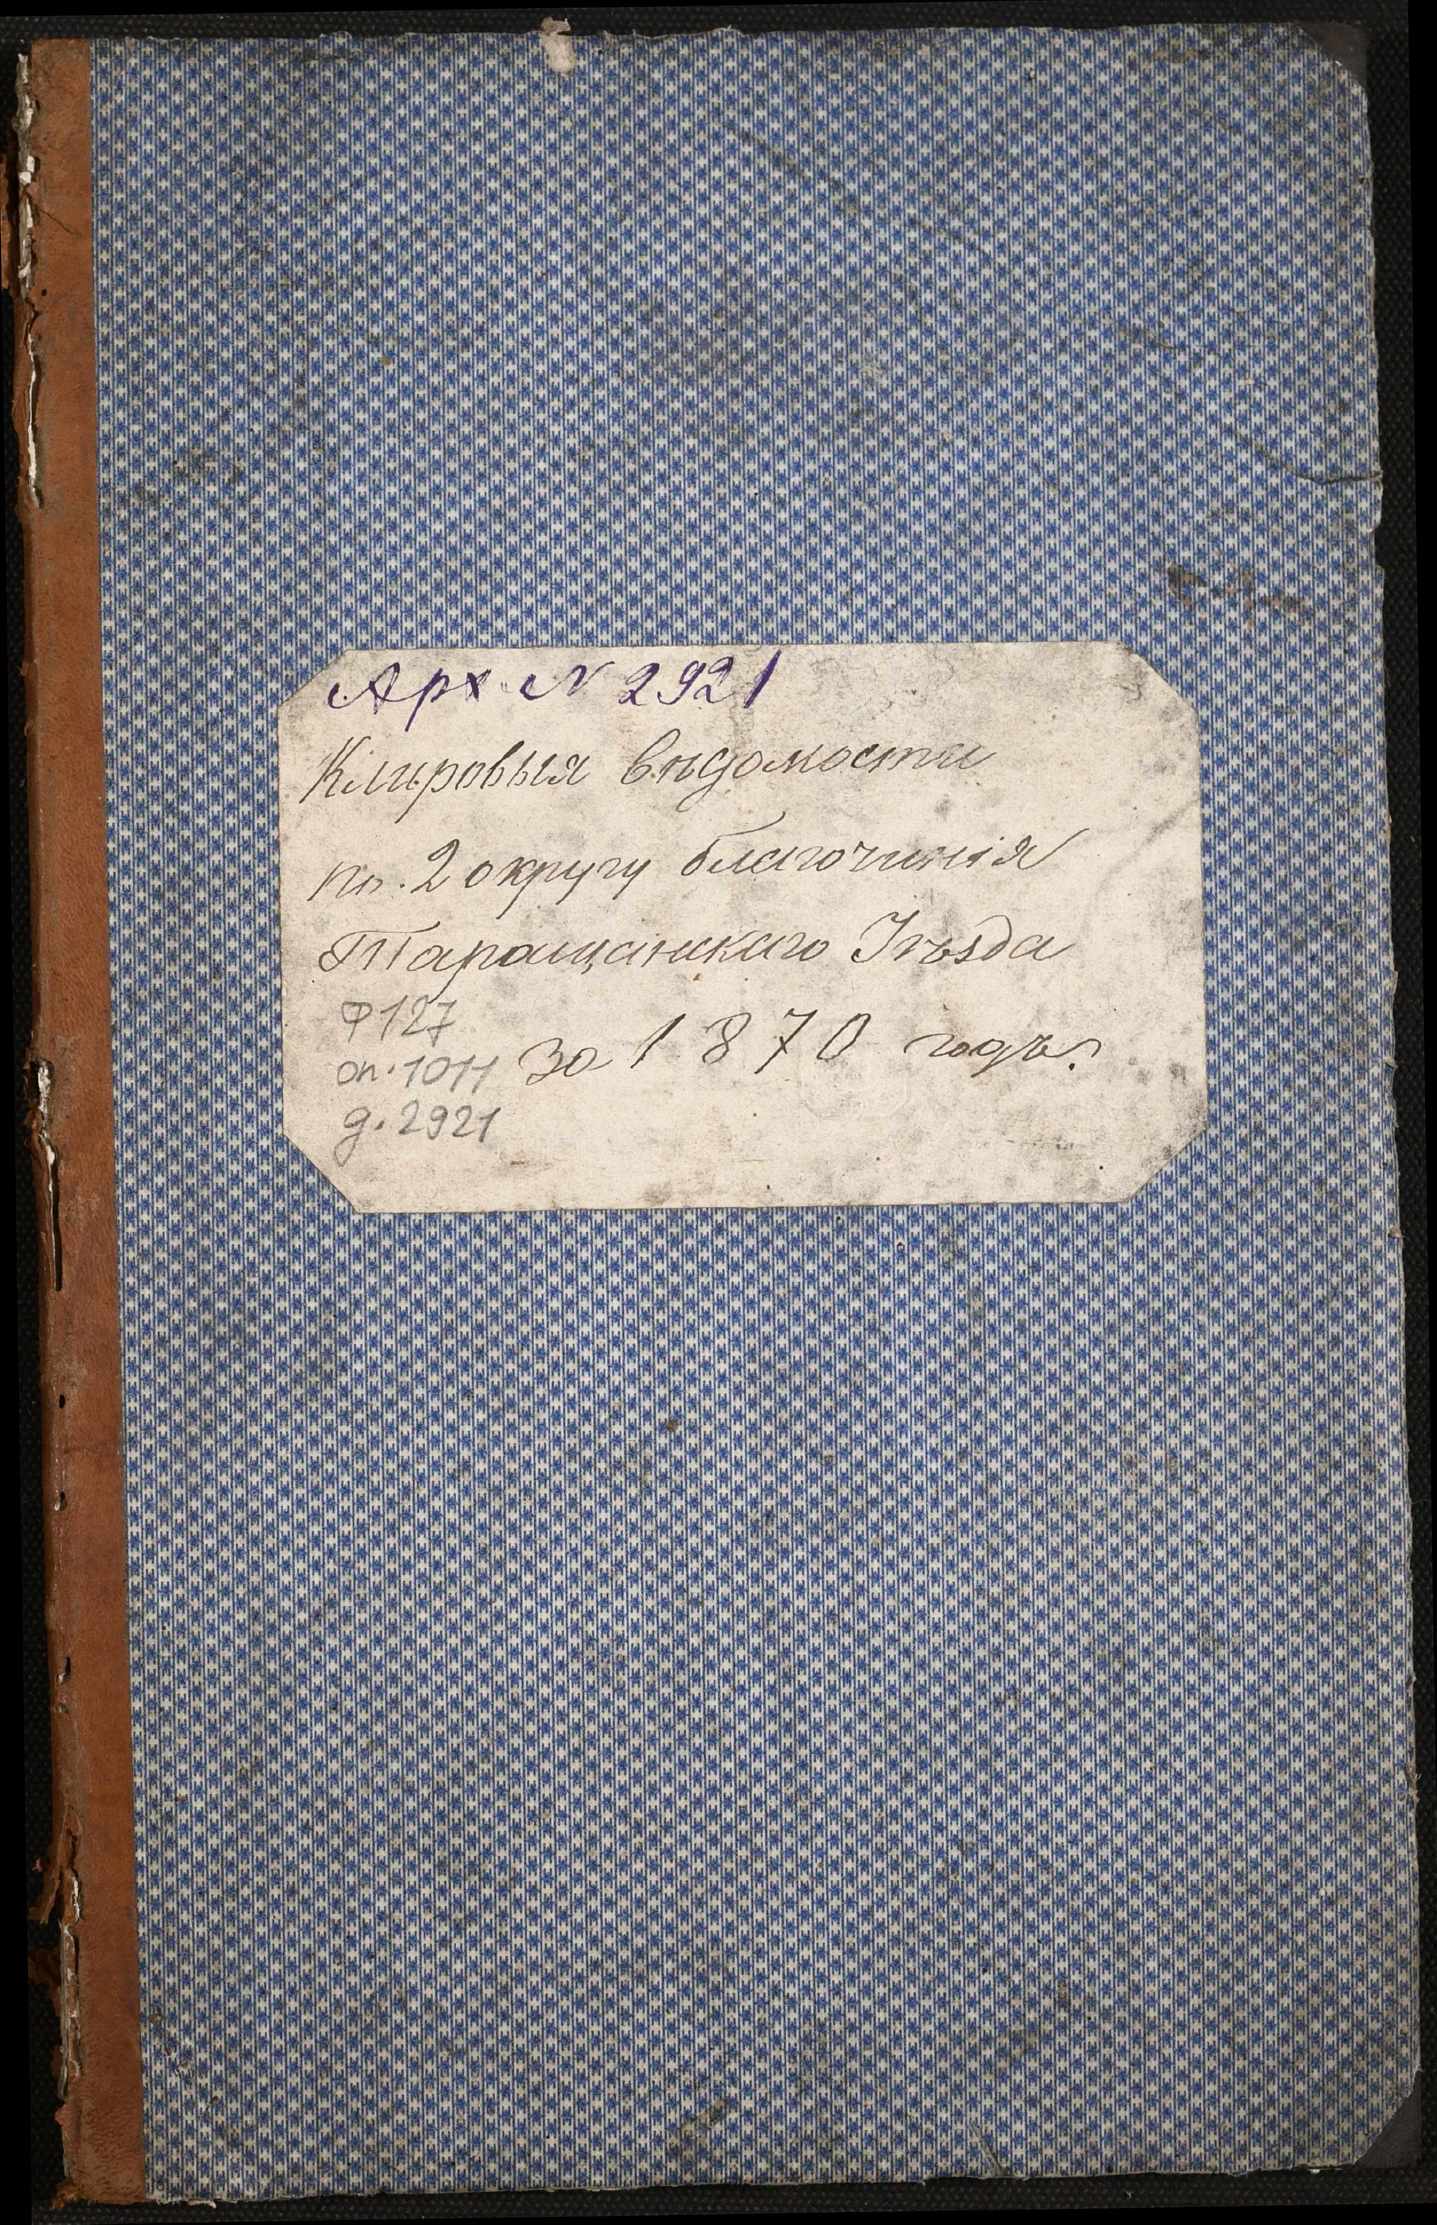 Арх N 2921
Клировыя вѣдомости
по. 2 округу благочинія
Таращанскаго Уѣзда
за 1870 годъ.
Ф 127
оп. 1011
д. 2921